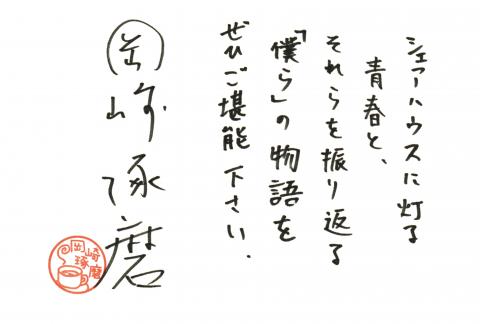 シェアハウスに灯る
青春と、
それらを振り返る
「僕ら」の物語を
ぜひご堪能下さい.
岡崎琢磨
岡崎琢磨